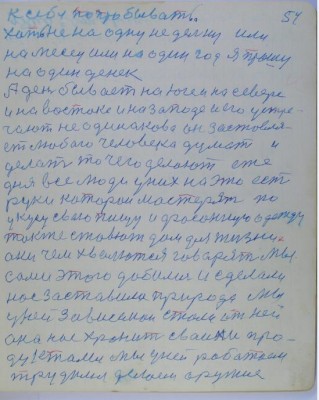 К себе попобывать. 54
хотя не на одну неделки или
на месец или на один год я прошу
на один денек
А ден бывает на юге и на севере
и на востоке и на западе и его встре-
чают не одинакова он заставля-
ет любого человека думат и
делат то чего делают еже
дня все люди у них на это есть
руки каторои мастерят по
вкусу свою пищу и
также ставют дом для жизни.
они чем хвалются говарят мы
сами этого добилис и сделали
нас заставила природа мы
у ней зависимои стали от ней
она нас хранит сваими про-
дуктами мы у ней работаем
трудимся делаем оружия